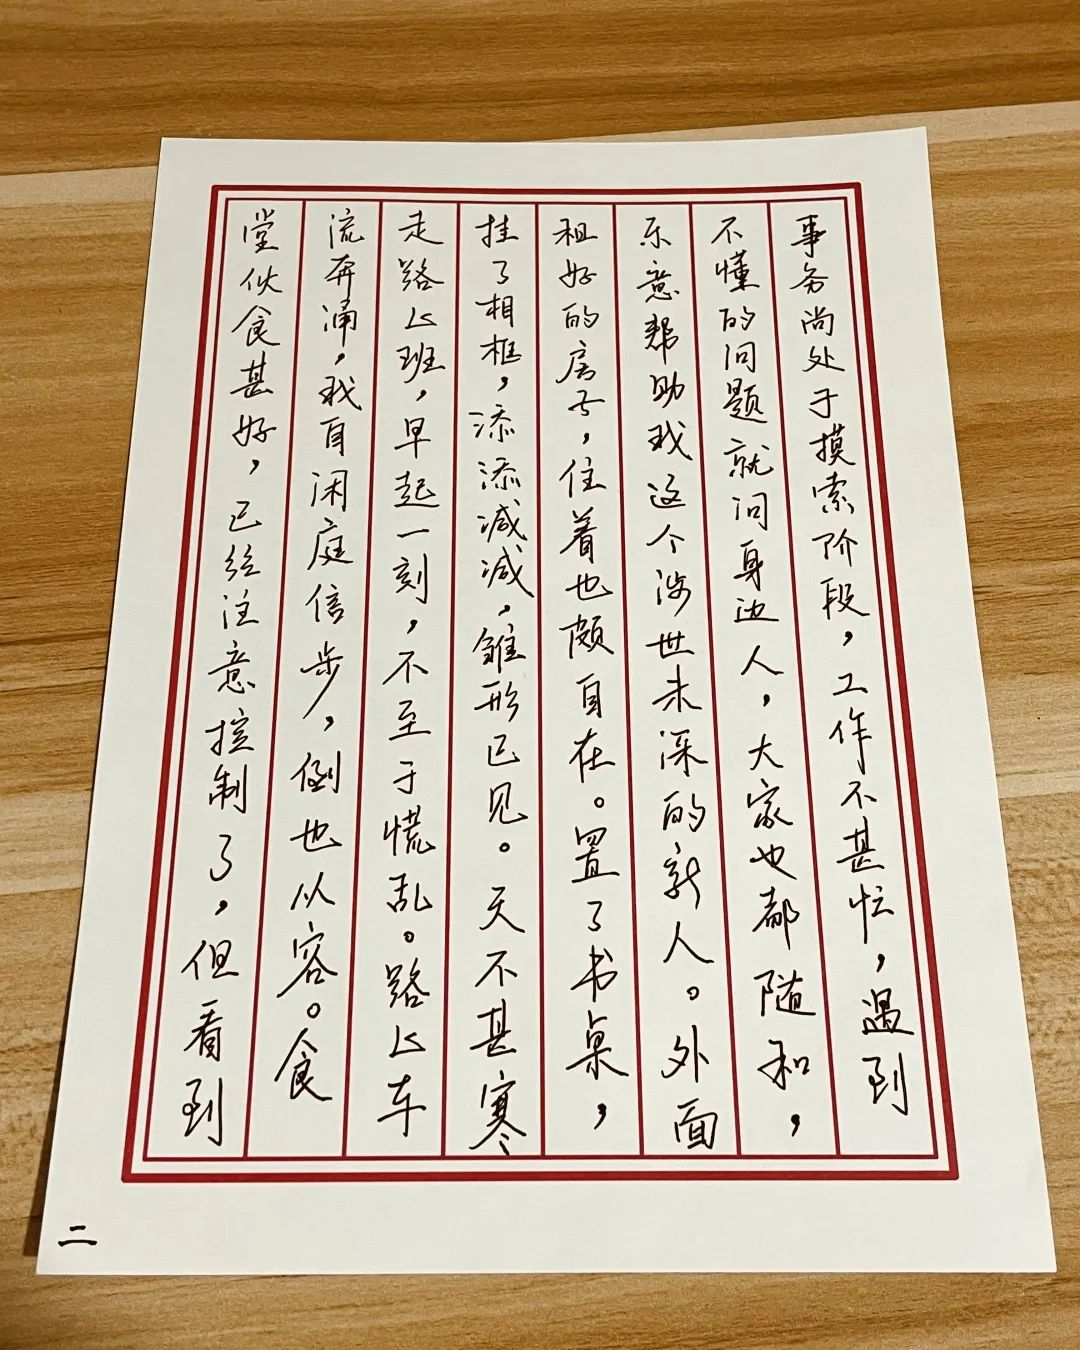 事务尚处于摸索阶段，工作不甚忙，遇到
不懂的问题就问身边人，大家也都随和，
乐意帮助我这个涉世未深的新人。外面
租好的房子，住着也颇自在。置了书桌，
挂了相框，添添减减，雏形已见。天不甚寒
走路上班，早起一刻，不至于慌乱。路上车
流奔涌，我自闲庭信步，倒也从容。食
堂伙食甚好，已经注意控制了，但看到
二